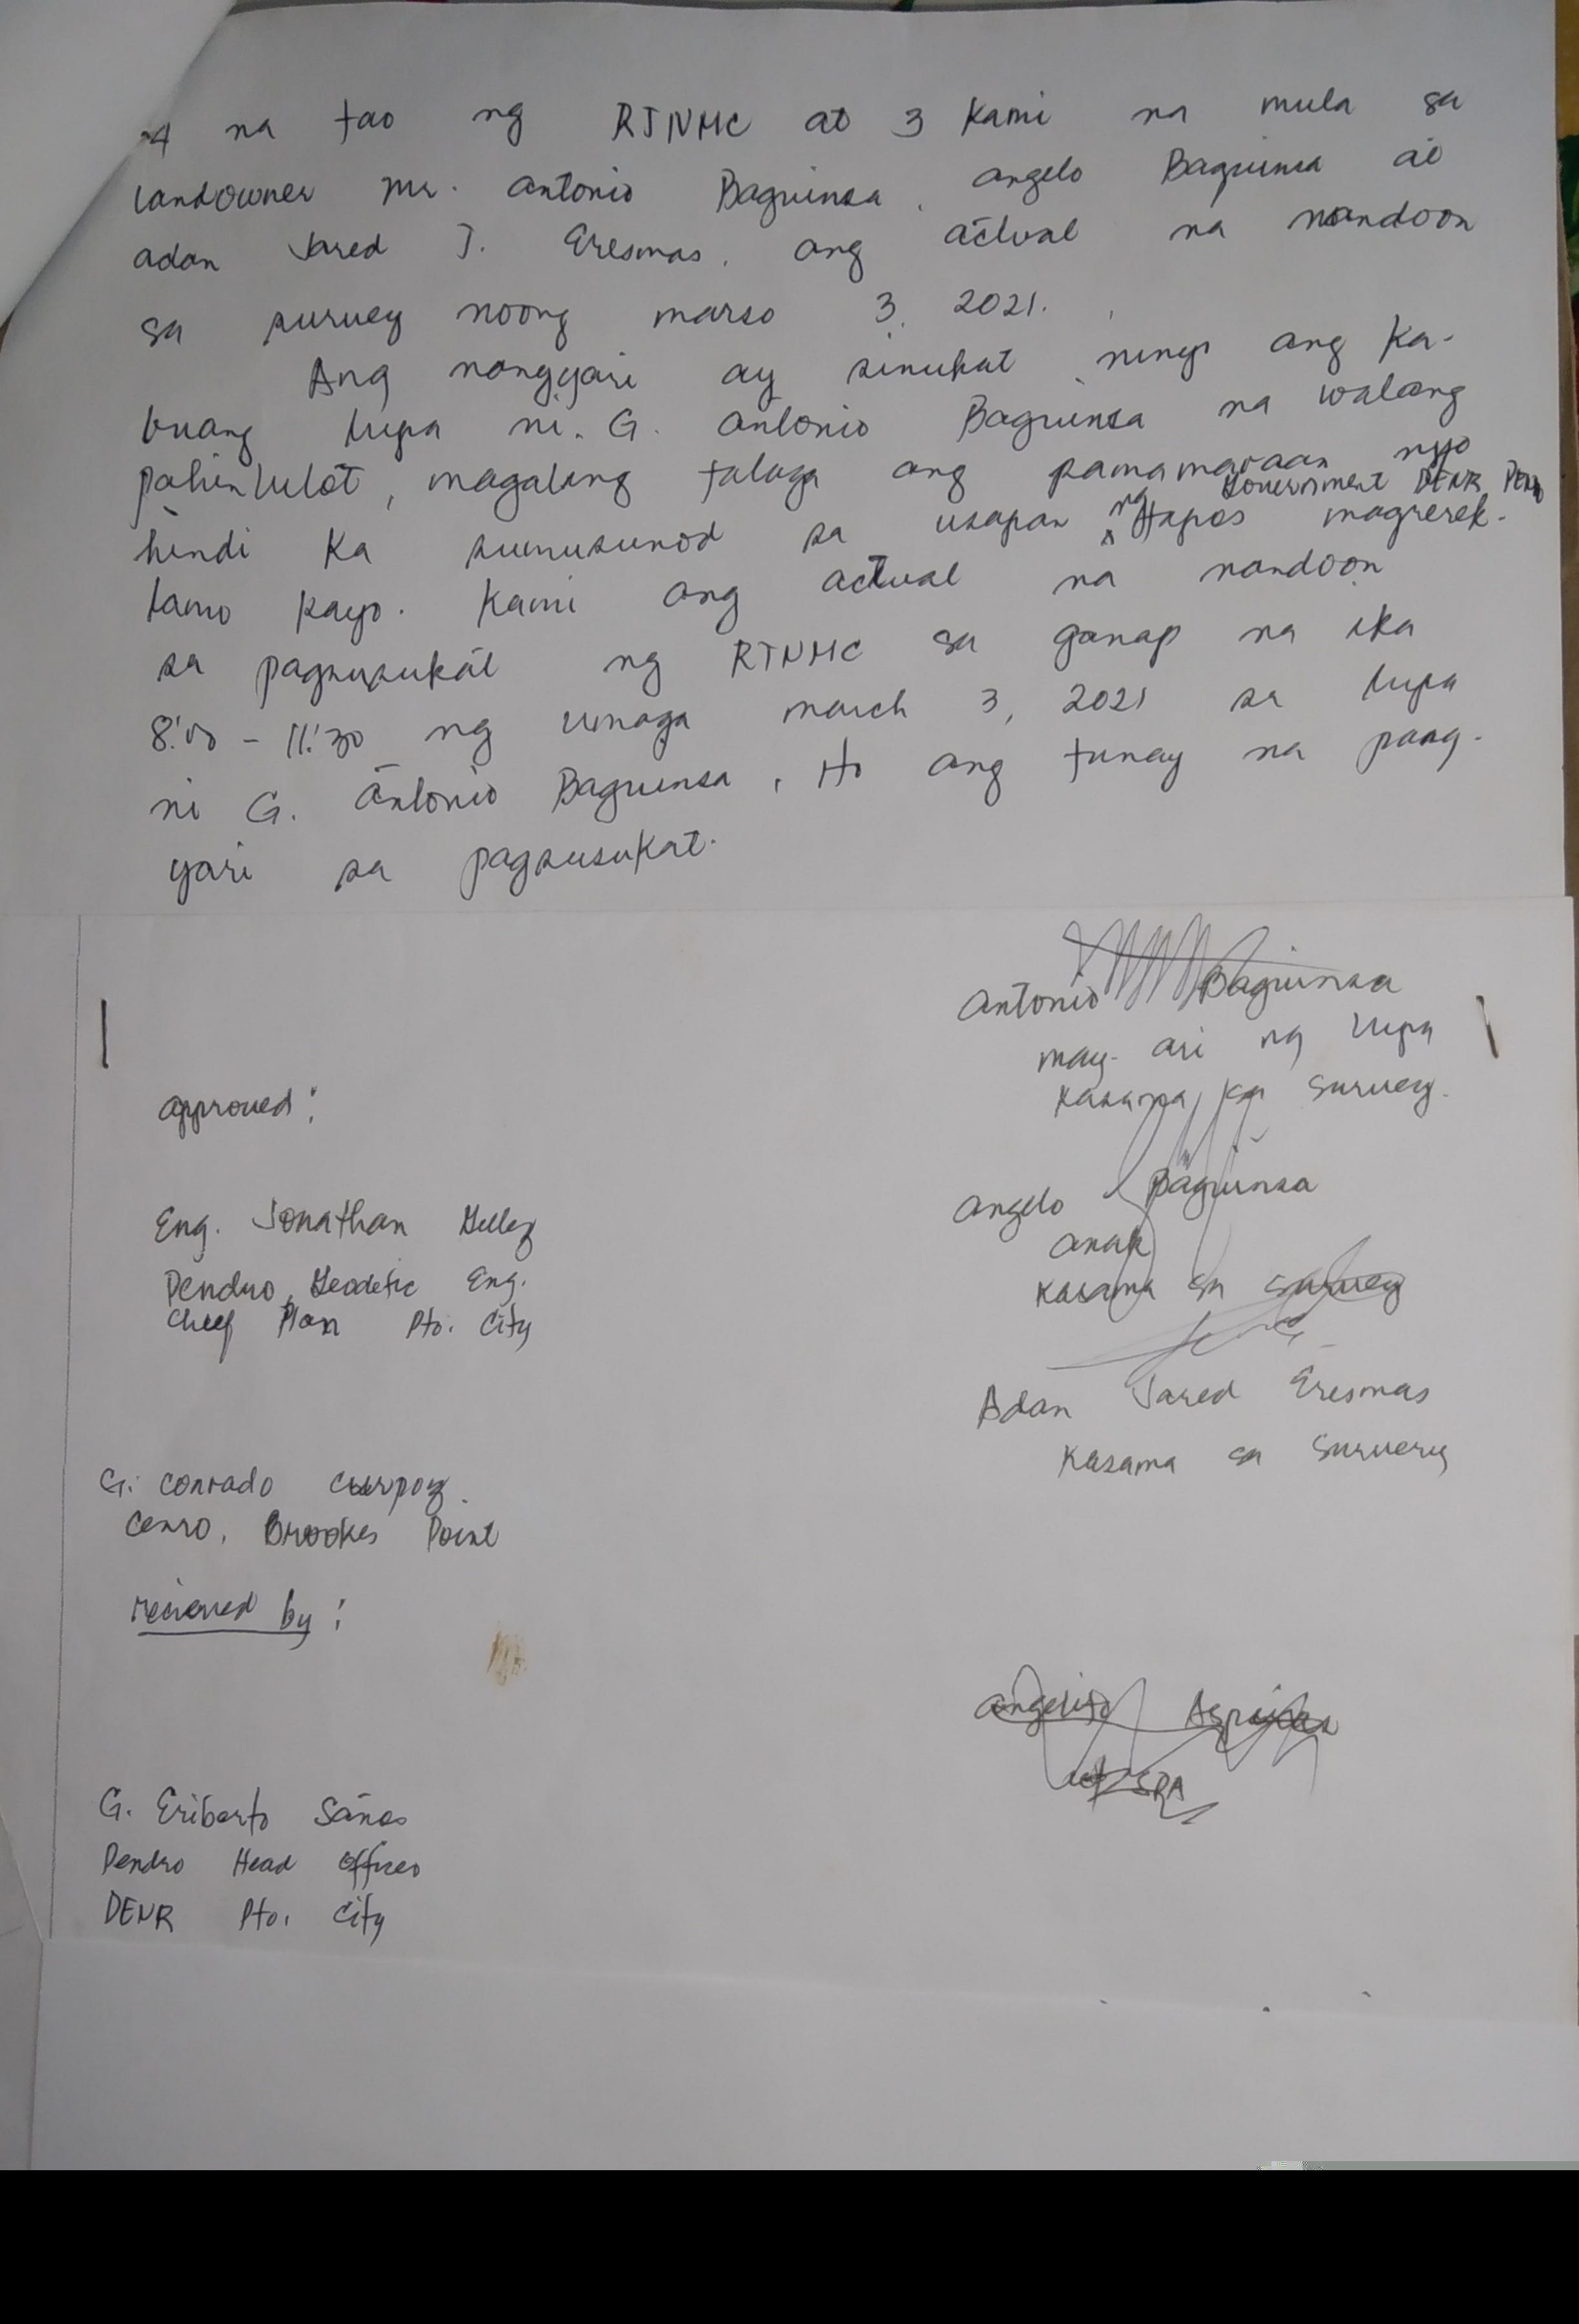 4 na tao ng RTNMC at 3 kami na mula sa
landowner Mr. Antonio Baguinsa, Angelo Baguinsa at
adan Jared J. Eresmas, ang actual na nandoon
sa survey noong marso 3, 2021.
Ang nangyari ay sinukat ninyo ang ka-
buang lupa ni G. Antonio Baguinsa na walang
pahintulot, magaling talaga ang pamamaraan nyo
Government DENR
hindi ka sumusunod sa usapan ng tapos magrerek-
lamo kayo. Kami ang actual na nandoon
sa pagsusukat ng RTNMC sa ganap na ika
8:00 - 11:30 ng umaga march 3, 2021 sa lupa
ni G. Antonio Baguinsa, Ito ang tunay na pang-
yari sa pagsusukat.
Antonio Baguinsa
may-ari ng lupa
kasama sa survey.
approved:
Angelo Baguinsa
anak
kasama sa survey
Eng. Jonathan
Pendro, Geodetic Eng.
Cheef Plan Pto. City
Adan Jared Eresmas
kasama sa survery
G. Conrado
Cenro, Brookes Point
recieved by:
angelito
SPA
G. Eriberto Saños
Pendro Head Officer
DENR Pto. City